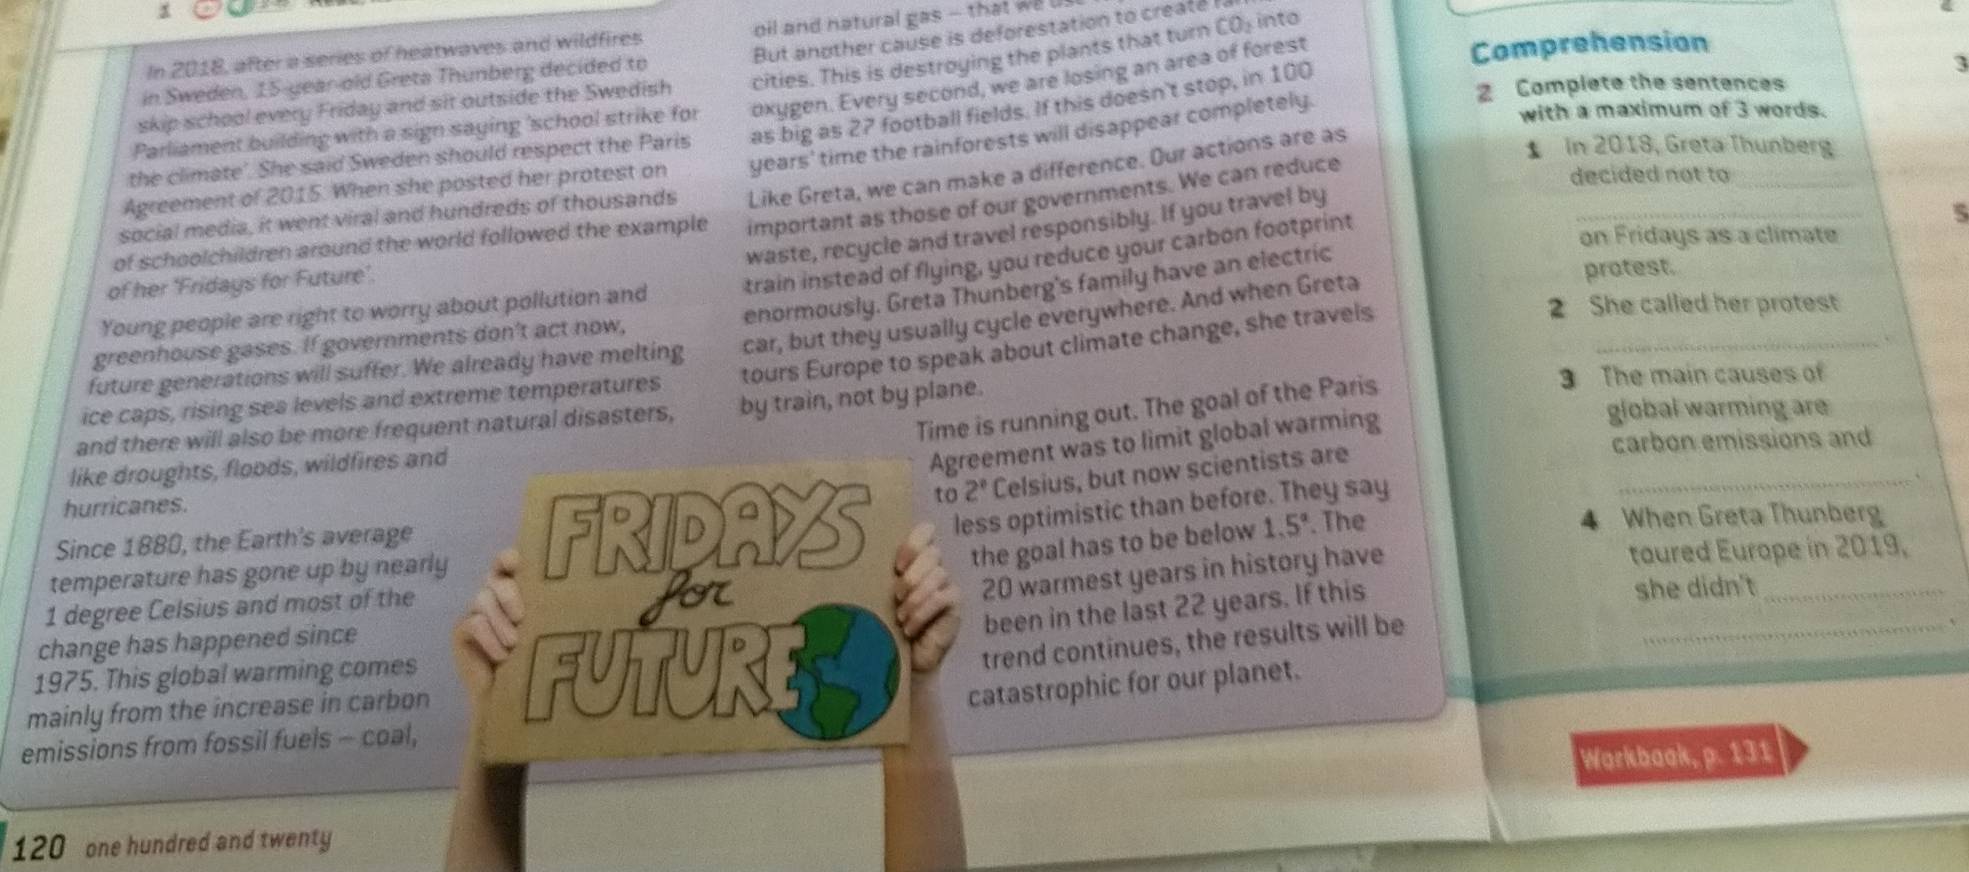 1
In 2018, after a series of heatwaves and wildfires
in Sweden, 15-year-old Greta Thunberg decided to
skip school every Friday and sit outside the Swedish
Parliament building with a sign saying 'school strike for
the climate'. She said Sweden should respect the Paris
Agreement of 2015. When she posted her protest on
social media, it went viral and hundreds of thousands
of schoolchildren around the world followed the example
of her 'Fridays for Future'.
Young people are right to worry about pollution and
greenhouse gases. If governments don't act now,
future generations will suffer. We already have melting
ice caps, rising sea levels and extreme temperatures
and there will also be more frequent natural disasters,
like droughts, floods, wildfires and
hurricanes.
Since 1880, the Earth's average
temperature has gone up by nearly
1 degree Celsius and most of the
change has happened since
1975. This global warming comes
mainly from the increase in carbon
emissions from fossil fuels – coal,
oil and natural gas – that we
But another cause is deforestation to create
cities. This is destroying the plants that turn CO₂ into
oxygen. Every second, we are losing an area of forest
as big as 27 football fields. If this doesn't stop, in 100
years' time the rainforests will disappear completely.
Like Greta, we can make a difference. Our actions are as
important as those of our governments. We can reduce
waste, recycle and travel responsibly. If you travel by
train instead of flying, you reduce your carbon footprint
enormously. Greta Thunberg's family have an electric
car, but they usually cycle everywhere. And when Greta
tours Europe to speak about climate change, she travels
by train, not by plane.
Time is running out. The goal of the Paris
Agreement was to limit global warming
to 2° Celsius, but now scientists are
less optimistic than before. They say
the goal has to be below 1.5°. The
20 warmest years in history have
been in the last 22 years. If this
trend continues, the results will be
catastrophic for our planet.
FRIDAYS
for
FUTURE
Comprehension
2 Complete the sentences
with a maximum of 3 words.
1 In 2018, Greta Thunberg
decided not to ______
______
on Fridays as a climate
protest.
2 She called her protest
______.
3 The main causes of
global warming are
carbon emissions and
______.
4 When Greta Thunberg
toured Europe in 2019,
she didn't ______
______.
Workbook, p. 131
3
5
120 one hundred and twenty